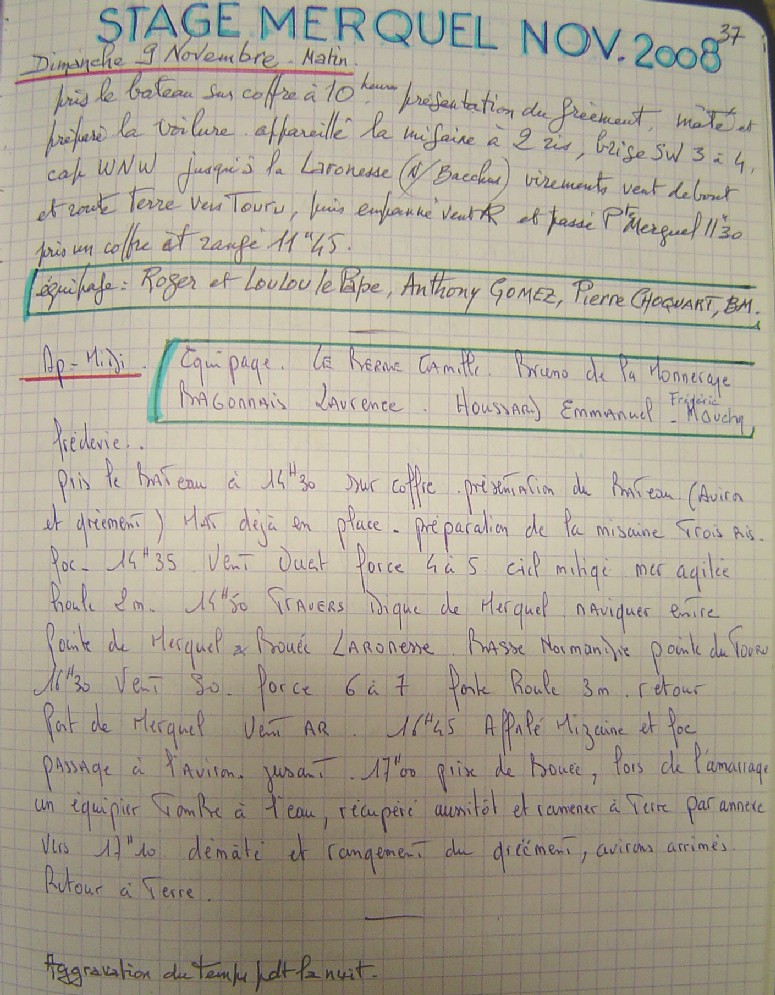 37
STAGE MERQUEL NOV. 2008
Dimanche 9 Novembre - Matin.
pris le bateau sur coffre à 10 heures présentation du gréement, mâté et
préparé la voilure. appareillé la misaine à 2 ris, brise SW 3 à 4,
cap WNW jusqu'à la Laronesse (N/ Bacchus) virements vent debout
et route Terre vers Touru, puis empanné vent AR et passé Pte Merquel 11h30
pris un coffre et rangé 11h45.
équipage : Roger et Loulou le Pape, Anthony GOMEZ, Pierre CHOQUART, BM.
Ap-Midi. Equipage. LE BERRE CAMille. Bruno de la Monneraye
RAGONNAIS LAurence. HOUSSARD EMMANuel - Frédéric Mouchq
fréderic..
Pris le BATeau à 14H30 sur coffre. présentation du BATeau. (Aviron
et gréement) Mat déjà en place - préparation de la misaine Trois Ris.
foc - 14H35 Vent Ouest force 4 à 5 ciel mitigé mer agitée
houle 2m. 14H50 TRAVERS Digue de Merquel NAviguer entre
Pointe de Merquel & Bouée LARONesse. BASSE NORMANDie pointe du TOURU
16H30 VenT SO. force 6 à 7 forte houle 3m. retour
Port de Merquel Vent AR. 16H45 AffAlé Mizaine et foc
PASSAGE à l'Aviron. jusant. 17H00 prise de Bouée, lors de l'amarrage
un équipier TomBe à l'eau, récupéré aussitôt et ramener à Terre par annexe
Vers 17H10 démâté et rangement du gréement, avirons arrimés.
Retour à Terre.
Aggravation du temps pdt la nuit.